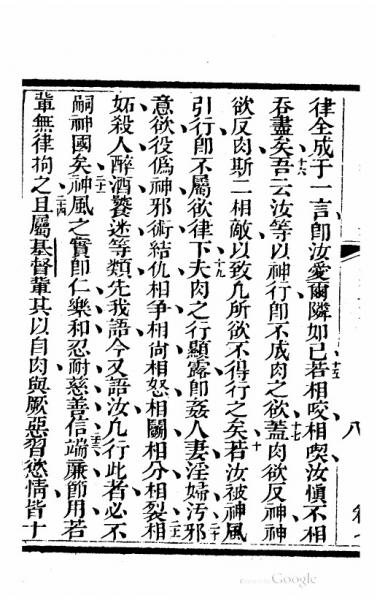 律全成于一言卽汝愛爾隣如己十五若相咬相喫汝愼不相
吞盡矣十六吾云汝等以神行卽不成肉之欲十七蓋肉欲反神神
欲反肉斯二相敵以致凡所欲不得行之矣若汝被神風
引行卽不屬欲律下十九夫肉之行顯露卽姦人妻淫婦汚邪
意欲役僞神邪術結仇相争相尙相怒相鬭相分相裂相
妬殺人醉酒饕迷等類先我語今又語汝凡行此者必不
嗣神國矣神風之實卽仁樂和忍耐慈善信端廉節用若
軰無律拘之二四且屬基督軰其以自肉與厥惡習慾情皆十
八
Google